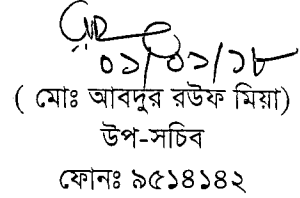 ০১/০১/১৮
( মোঃ আবদুর রউফ মিয়া)
উপ-সচিব
ফোনঃ ৯৫১৪১৪২